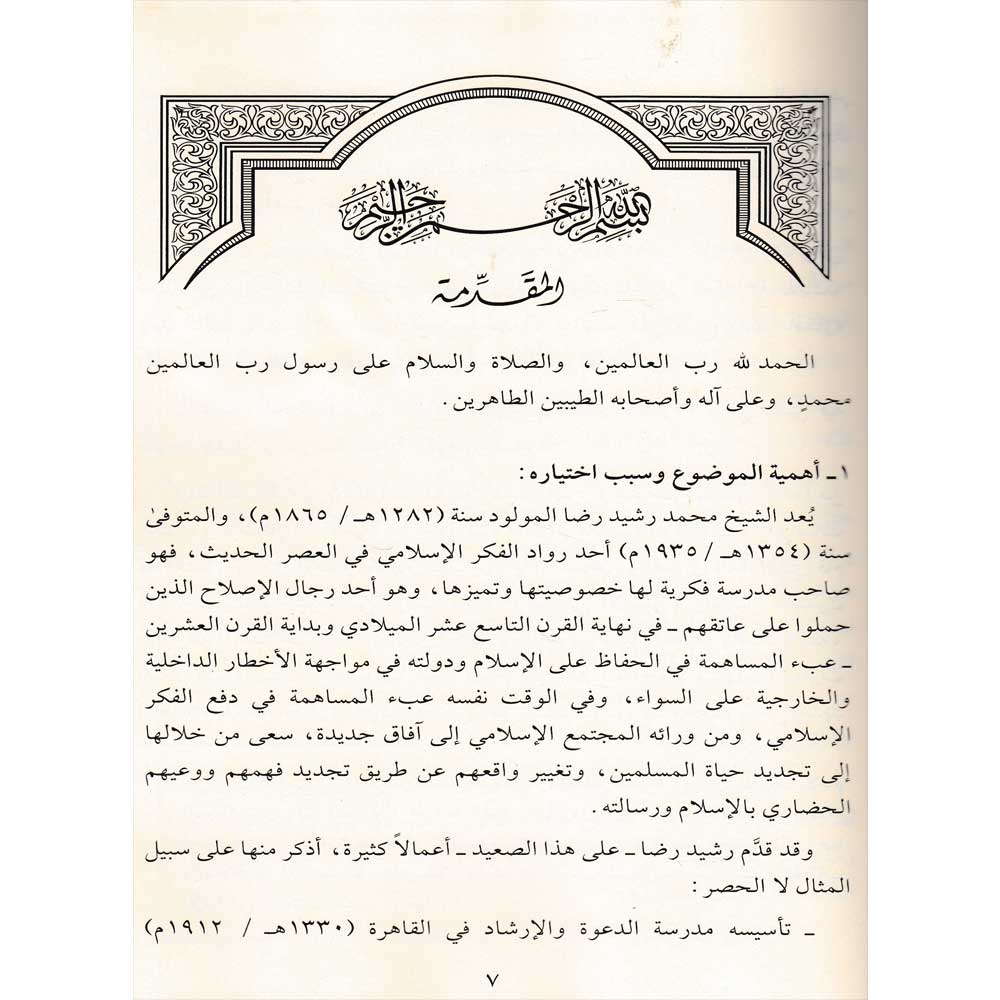 بسم الله الرحمن الرحيم
المقَدِّمة
الحمد لله رب العالمين، والصلاة والسلام على رسول رب العالمين
محمدٍ، وعلى آله وأصحابه الطيبين الطاهرين.
١ ـ أهمية الموضوع وسبب اختياره:
يُعد الشيخ محمد رشيد رضا المولود سنة (١٢٨٢هـ/ ١٨٦٥م)، والمتوفىٰ
سنة (١٣٥٤هـ/ ١٩٣٥م) أحد رواد الفكر الإسلامي في العصر الحديث، فهو
صاحب مدرسة فكرية لها خصوصيتها وتميزها، وهو أحد رجال الإصلاح الذين
حملوا على عاتقهم ـ في نهاية القرن التاسع عشر الميلادي وبداية القرن العشرين
ـ عبء المساهمة في الحفاظ على الإسلام ودولته في مواجهة الأخطار الداخلية
والخارجية على السواء، وفي الوقت نفسه عبء المساهمة في دفع الفكر
الإسلامي، ومن ورائه المجتمع الإسلامي إلى آفاق جديدة، سعى من خلالها
إلى تجديد حياة المسلمين، وتغيير واقعهم عن طريق تجديد فهمهم ووعيهم
الحضاري بالإسلام ورسالته.
وقد قدَّم رشيد رضا ـ على هذا الصعيد ـ أعمالاً كثيرة، أذكر منها على سبيل
المثال لا الحصر:
ـ تأسيسه مدرسة الدعوة والإرشاد في القاهرة (١٣٣٠هـ / ١٩١٢م)
٧